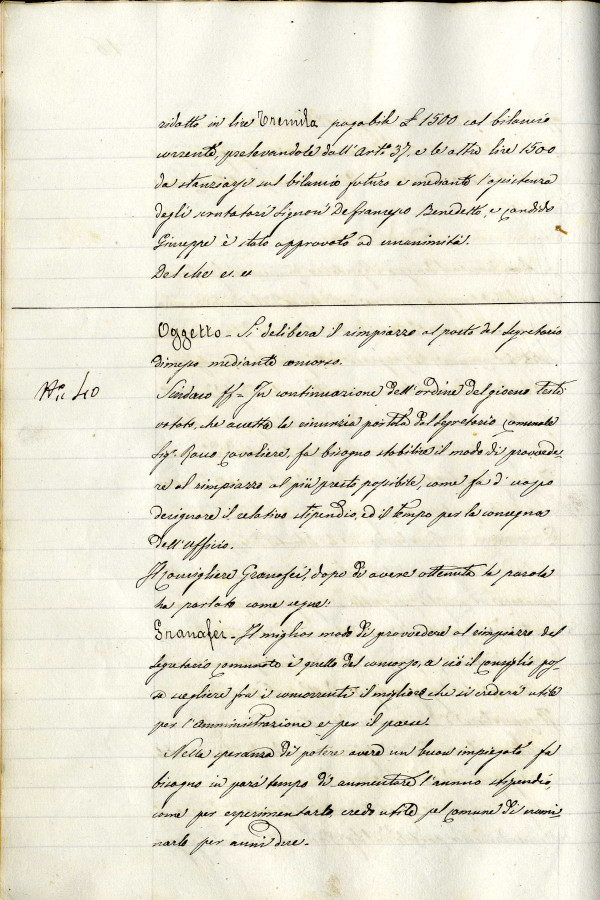 ridotto in lire Tremila pagabili £ 1500 col bilancio
corrente, prelevandole dall'Arto 37, e le altre lire 1500
da stanziarsi sul bilancio futuro e mediante l'assistenza
degli scrutatori Signori Defrancesco Benedetto, e Candido
Giuseppe è stato approvato ad unanimità.
Del che es. es
Oggetto - Si delibera il rimpiazzo al posto del Segretario
dimesso mediante concorso.
No 40
Sindaco ff - In continuazione dell'ordine del giorno testè
votato, che accetta la rinunzia portata dal Segretario Comunale
Sigr Rocco Cavaliere, fa bisogno stabilire il modo di provvede-
re al rimpiazzo al più presto possibile, come fa d'uopo
designare il relativo stipendio, ed il tempo per la consegna
dell'Ufficio.
Il Consigliere Granafei, dopo di avere ottenuta la parola
ha parlato come segue:
Granafei - Il miglior modo di provvedere al rimpiazzo del
Segretario Comunale è quello del concorso, a ciò il Consiglio pos-
sa scegliere fra i concorrenti il migliore che si crederà utile
per l'amministrazione e per il paese.
Nella speranza di potere avere un buon impiegato fa
bisogno in pari tempo di aumentare l'annuo stipendio,
come per esperimentarlo, credo utile pel Comune di nomi-
narlo per anni due.